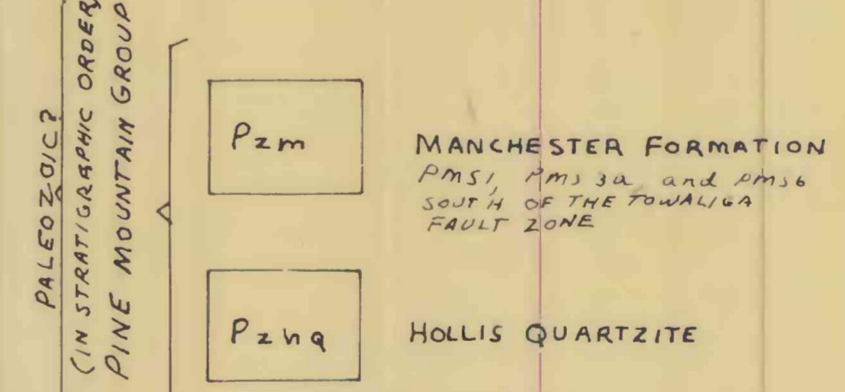 PALEOZOIC?
(IN STRATIGRAPHIC ORDER)
PINE MOUNTAIN GROUP
Pzm
MANCHESTER FORMATION
pms1, pms3a and pms6
SOUTH OF THE TOWALIGA
FAULT ZONE
Pzhq
HOLLIS QUARTZITE